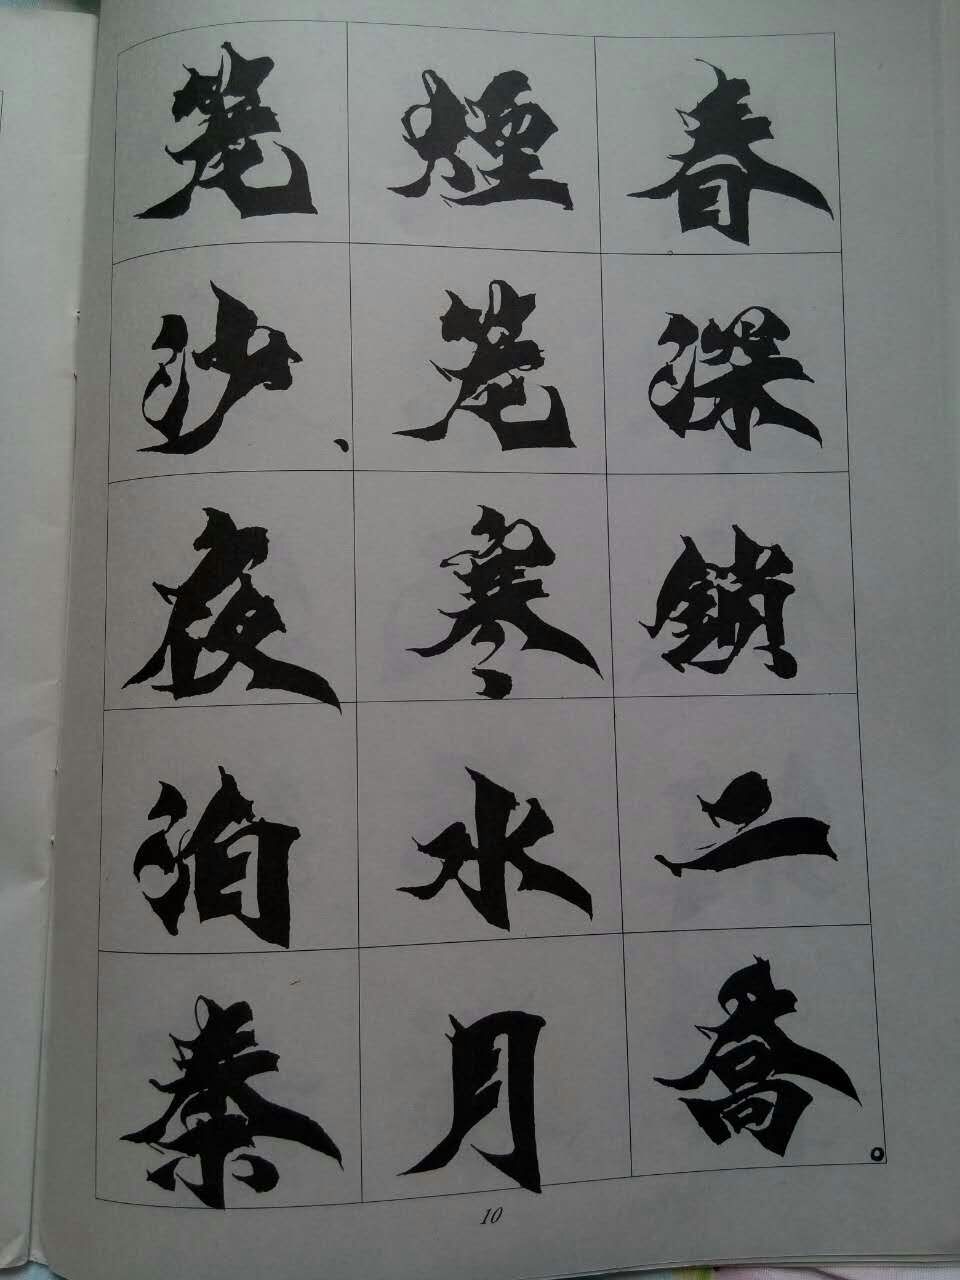 春深鎖二喬。
煙笼寒水月
笼沙、夜泊秦
10